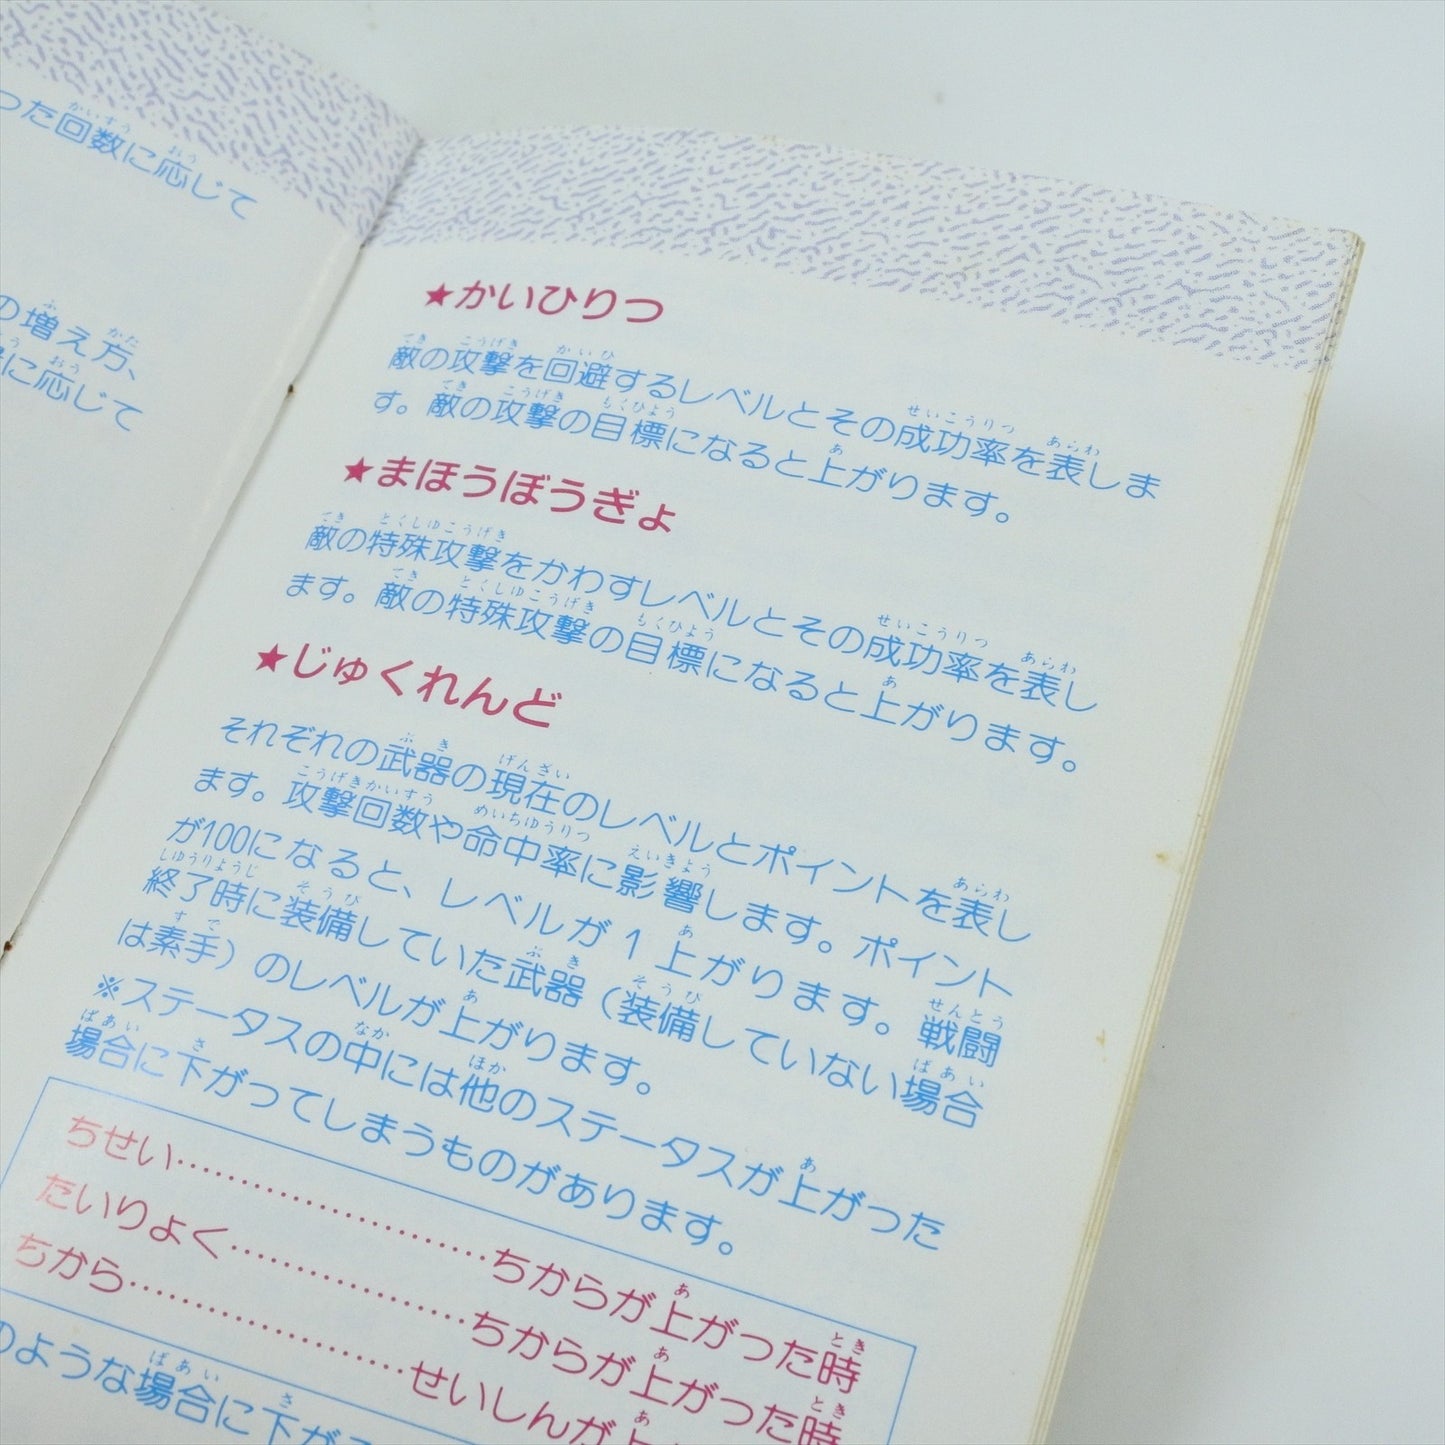 った回数に応じて
の増え方、
に応じて
★かいひりつ
敵の攻撃を回避するレベルとその成功率を表しま
す。敵の攻撃の目標になると上がります。
★まほうぼうぎょ
敵の特殊攻撃をかわすレベルとその成功率を表し
ます。敵の特殊攻撃の目標になると上がります。
★じゅくれんど
それぞれの武器の現在のレベルとポイントを表し
ます。攻撃回数や命中率に影響します。ポイント
が100になると、レベルが1上がります。戦闘
終了時に装備していた武器（装備していない場合
は素手）のレベルが上がります。
※ステータスの中には他のステータスが上がった
場合に下がってしまうものがあります。
ちせい……………………ちからが上がった時
たいりょく………………ちからが上がった時
ちから……………………せいしんが上
のような場合に下が